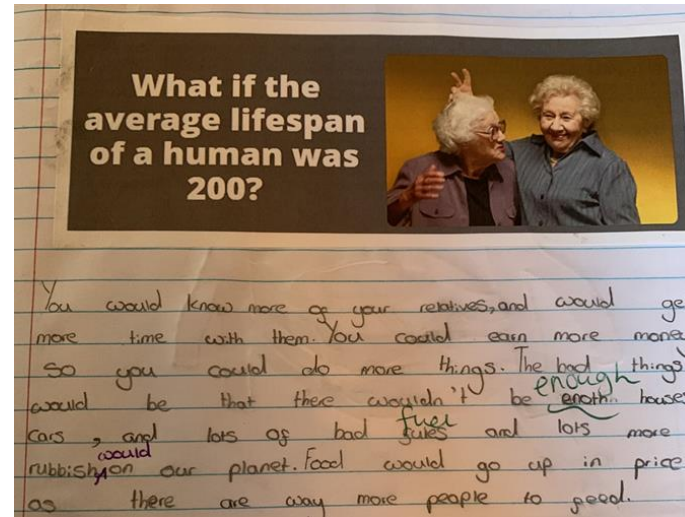 What if the
average lifespan
of a human was
200?
You would know more of your relatives, and would ge
more time with them. You could earn more money
so you could do more things. The bad things
enough
would be that there wouldn't be enoth houses
fuel
cars, and lots of bad fules and lots more
would
rubbish, on our planet. Food would go up in price
as there are way more people to feed.